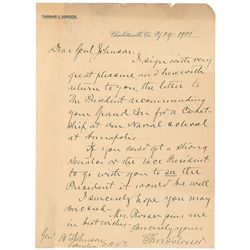 THOMAS L. ROSSER
Charlottesville Va 9/29 - 1901
Dear Genl Johnson.
I sign with very
great pleasure and herewith
return to you, the letter to
The President recommending
your Grand Son for a Cadet
Ship at our Naval school
at Annapolis.
If you could get a strong
Senator or the Vice President
to go with you to see the
President it would be well
I sincerely hope you may
succeed.
Mrs. Rosser joins me
in best wishes. Sincerely yours
Genl B Johnson